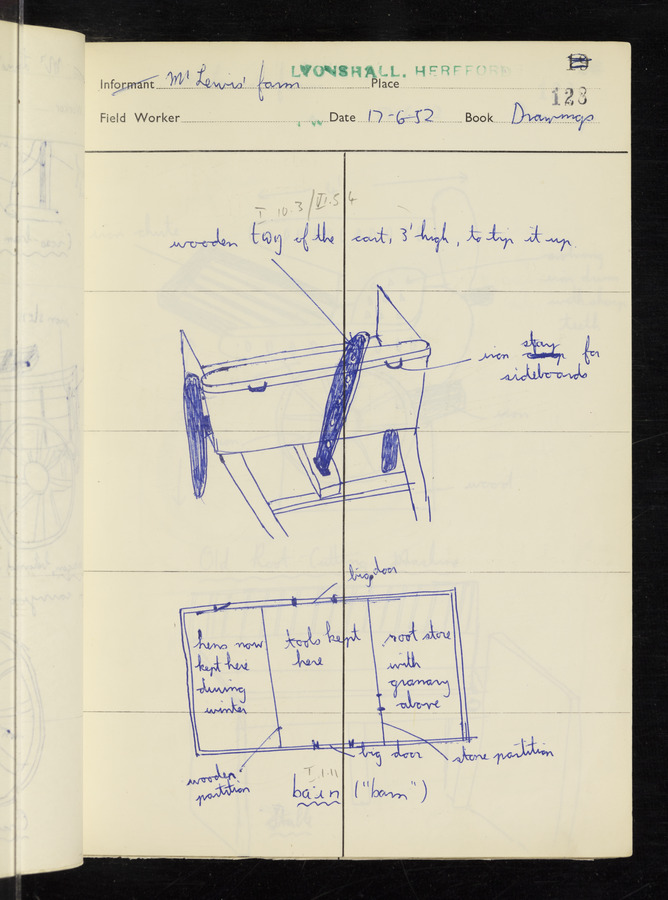 LYONSHALL, HEREFORD
Informant Mr Lewis' farm Place
19
128
Field Worker Date 17-6-52 Book Drawings
I 10.3/VI.5.4
wooden of the cart, 3' high, to tip it up.
iron stay for
sideboards
big door
hens now
kept here
during
winter
tools kept
here
root store
with
granary
above
big door
stone partition
wooden
partition
I.1.11
("barn")